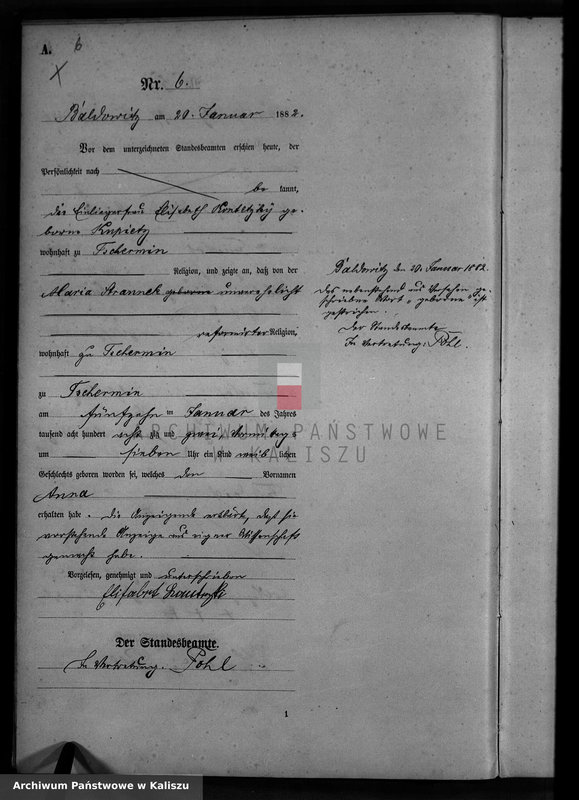 A. 6
Nr. 6.
Baldowitz am 20. Januar 1882.
Vor dem unterzeichneten Standesbeamten erschien heute, der
Persönlichkeit nach
be kannt,
die Einliegerfrau Elisabeth ge-
borne Kupietz
wohnhaft zu Tschermin
Religion, und zeigte an, daß von der
Maria geborne unverehelicht
reformirter Religion,
wohnhaft zu Tschermin
zu Tschermin
am fünfzehn ten Januar des Jahres
tausend acht hundert achtzig und zwei, Vormittags
um sieben Uhr ein Kind weib lichen
Geschlechts geboren worden sei, welches den Vornamen
Anna
erhalten habe. Die Anzeigende erklärt, daß sie
vorstehende Anzeige aus eigner Wissenschaft
gemacht habe.
Vorgelesen, genehmigt und unterschrieben
Der Standesbeamte.
In Vertretung. Pohl
Baldowitz den 20. Januar 1882.
Das nebenstehend aus Versehen ge-
schriebene Wort „geborene" ist
gestrichen.
Der Standesbeamte
In Vertretung: Pohl.
1
ARCHIWUM PAŃSTWOWE
W KALISZU
Archiwum Państwowe w Kaliszu